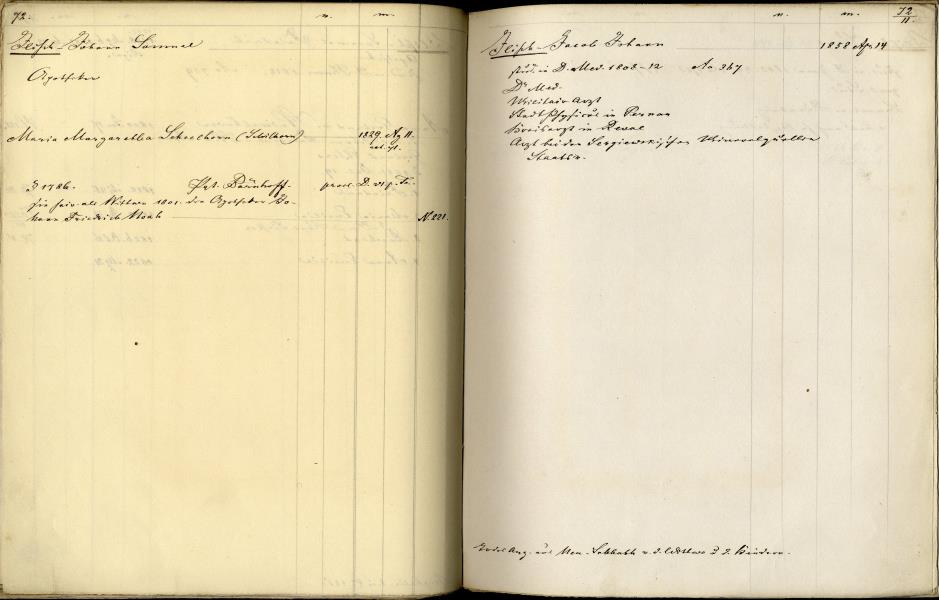 72.
n. m.
Flisch Johann Samuel
Apotheker
Maria Margaretha Scheelhorn (Schilhorn) 1829. Ap 11.
aet. 71.
Z 1786. Past. Bärnhoff. procl. D.
sie heir. als Wittwe 1801. den Apotheker Jo-
hann Friedrich Noab N. 221.
n. m. 72
II.
Flisch Jacob Johann 1858 Apr 14
stud. in D. Med. 1808-12 No. 367
Dr Med.
Militair Arzt
Stadtphysicus in Pernau
Kreisarzt in Reval
Arzt bei den Sergiewskischen Mineralquellen
Staatsr.
Todes Anz. aus u. d. Wittwe 2 Kindern.